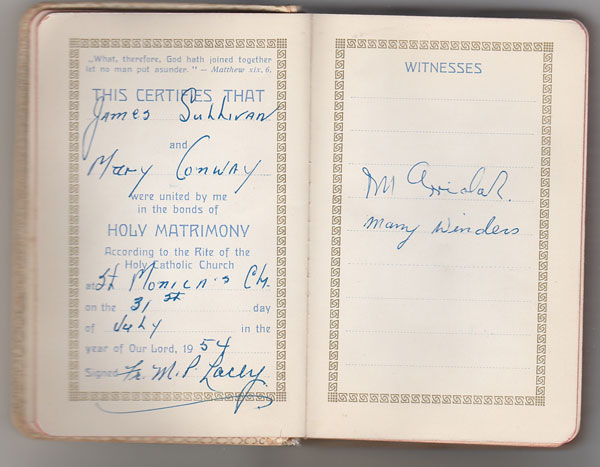 „What, therefore, God hath joined together
let no man put asunder." — Matthew xix, 6.
THIS CERTIFIES THAT
James Sullivan
and
Mary Conway
were united by me
in the bonds of
HOLY MATRIMONY
According to the Rite of the
Holy Catholic Church
at St Monica's Ch.
on the 31st day
of July in the
year of Our Lord, 1954
Signed Fr. M. P. Lacey
WITNESSES
M
Mary Winders